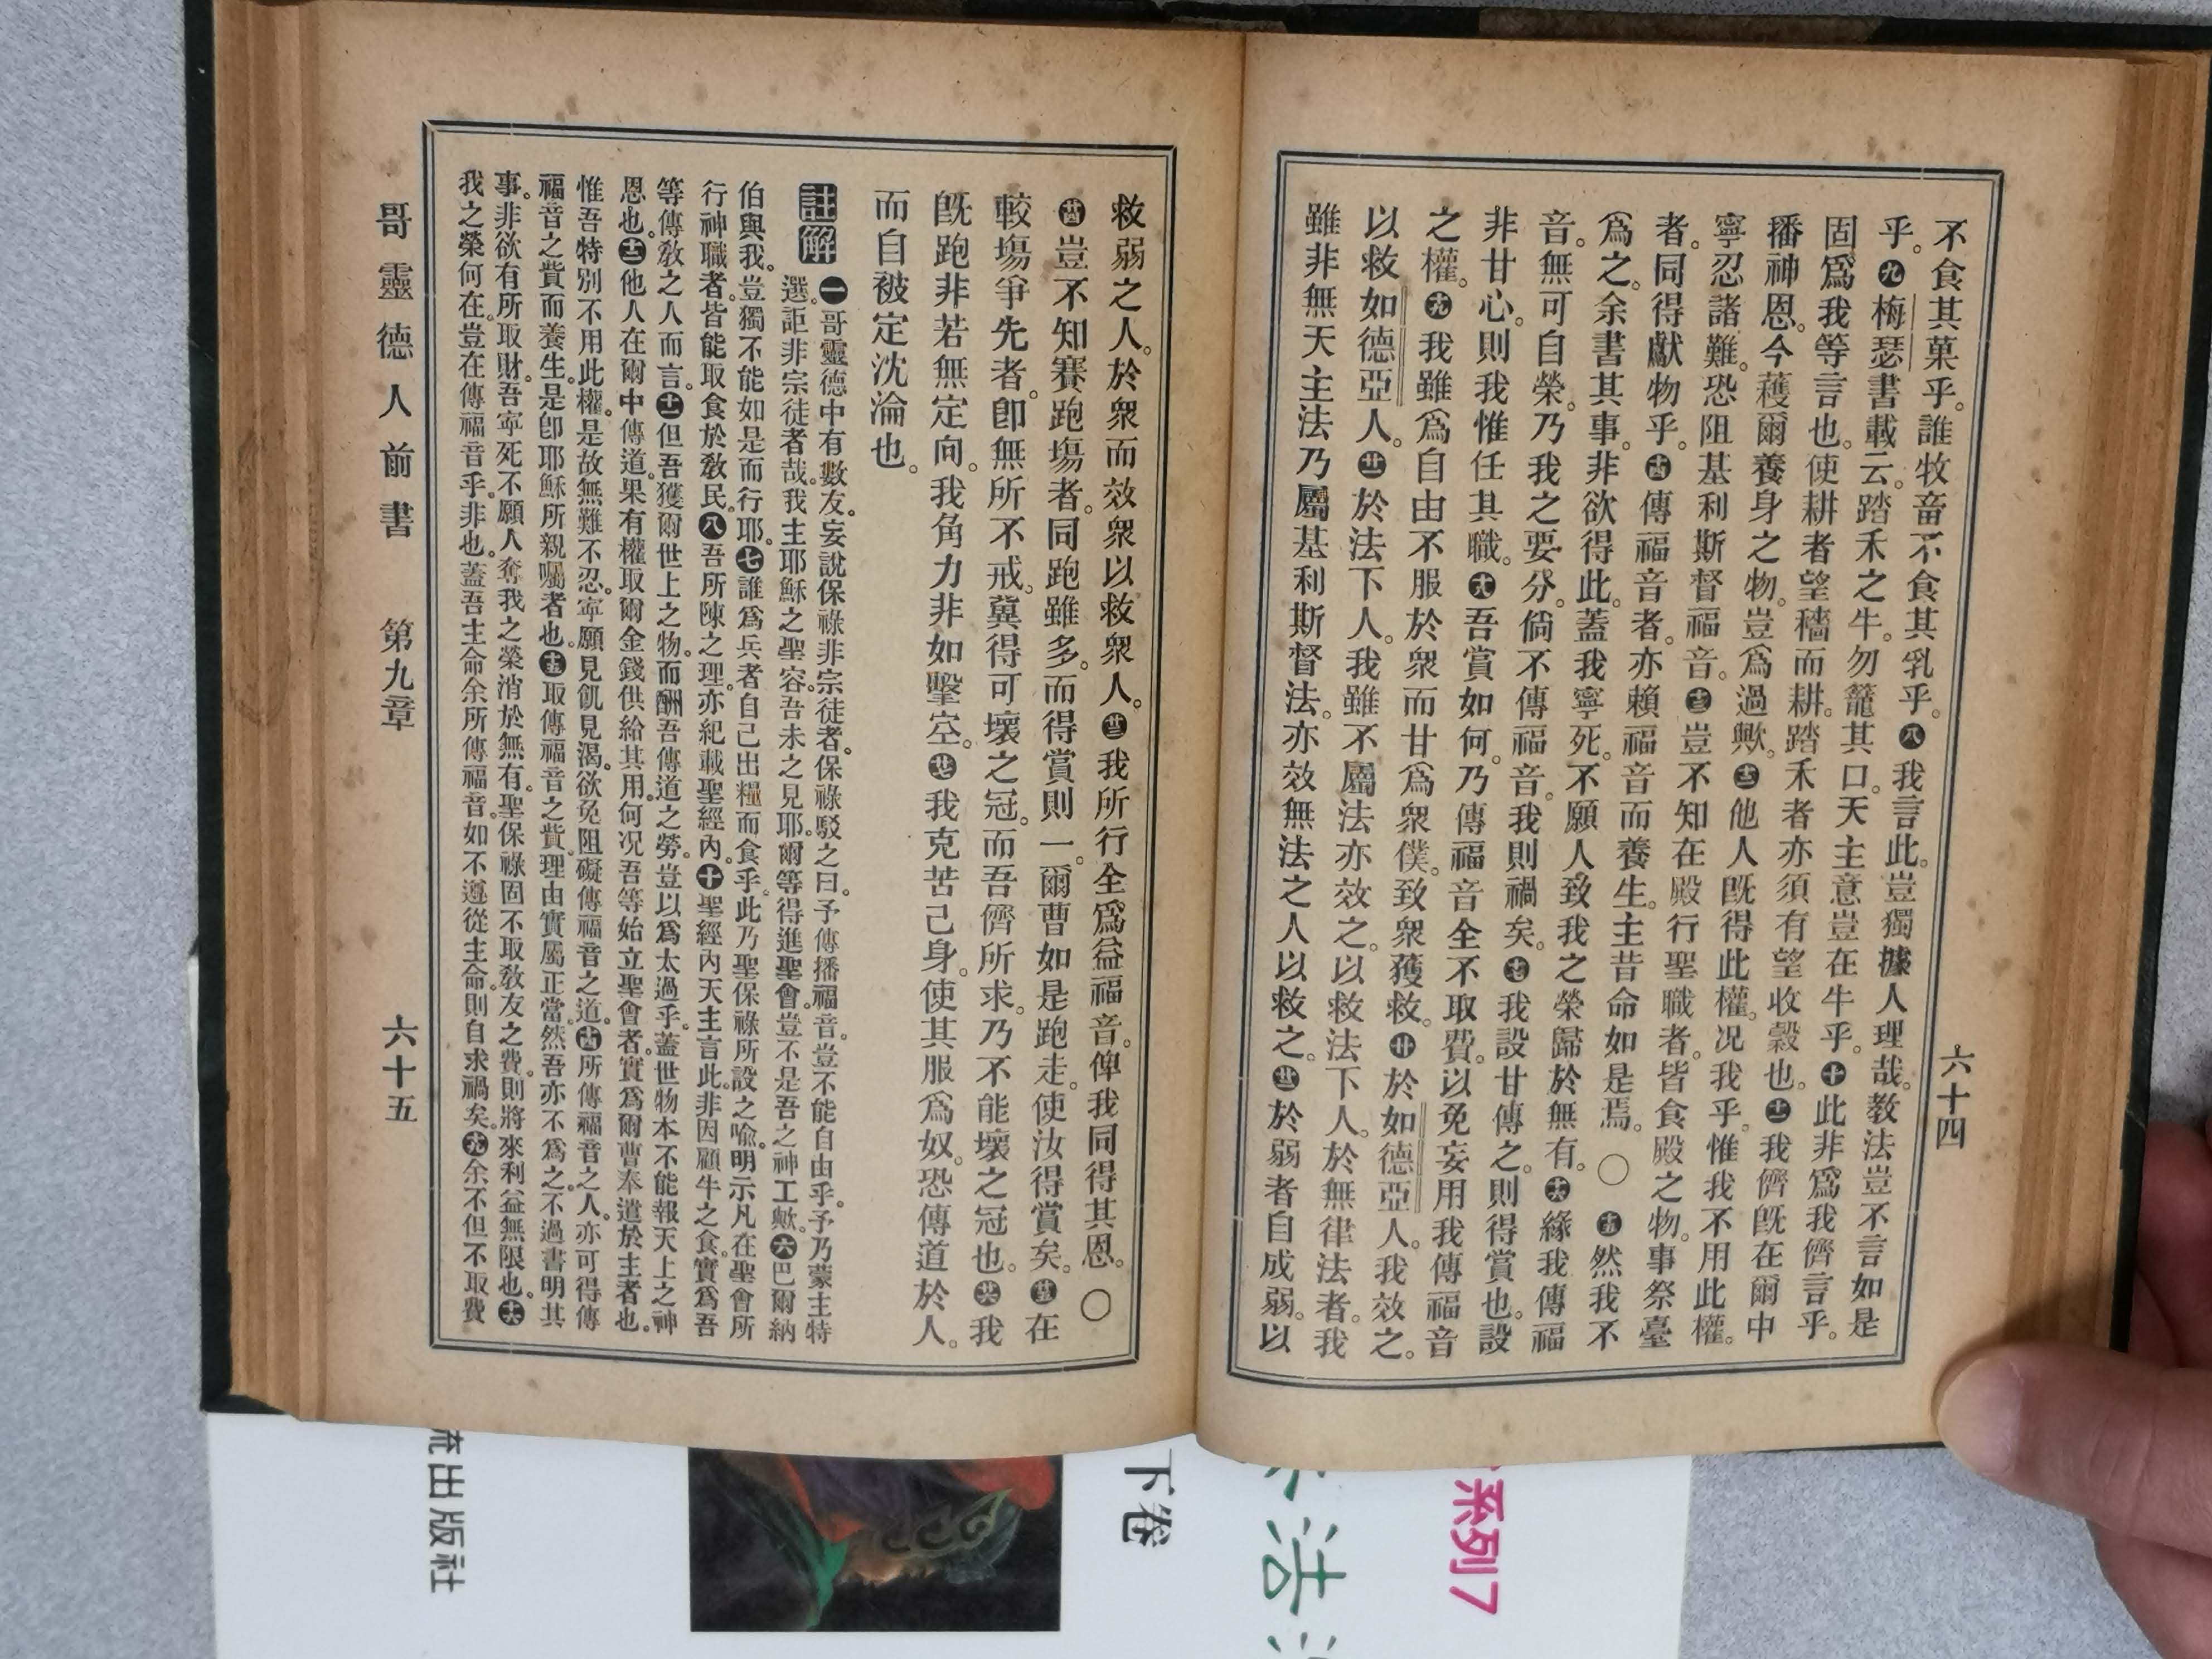 不食其菓乎。誰牧畜不食其乳乎。八我言此。豈獨據人理哉。教法豈不言如是
乎。九梅瑟書載云。踏禾之牛。勿籠其口。天主意豈在牛乎。十此非爲我儕言乎。
固爲我等言也。使耕者望穡而耕。踏禾者亦須有望收穀也。十一我儕旣在爾中
播神恩。今蘀爾養身之物。豈爲過歟。十二他人旣得此權。况我乎。惟我不用此權。
寧忍諸難。恐阻基利斯督福音。十三豈不知在殿行聖職者。皆食殿之物。事祭臺
者。同得獻物乎。十四傳福音者。亦賴福音而養生。主昔命如是焉。〇十五然我不
爲之。余書其事。非欲得此。蓋我寧死。不願人致我之榮歸於無有。十六緣我傳福
音。無可自榮。乃我之要分。倘不傳福音。我則禍矣。十七我設甘傳之。則得賞也。設
非甘心。則我惟任其職。十八吾賞如何。乃傳福音全不取費。以免妄用我傳福音
之權。十九我雖爲自由不服於衆而甘爲衆僕。致衆獲救。二十於如德亞人。我效之。
以救如德亞人。廿一於法下人。我雖不屬法亦效之。以救法下人。於無律法者。我
雖非無天主法乃屬基利斯督法。亦效無法之人以救之。廿二於弱者自成弱。以
六十四
救弱之人。於衆而效衆以救衆人。廿三我所行全爲益福音。俾我同得其恩。〇
廿四豈不知賽跑塲者。同跑雖多。而得賞則一。爾曹如是跑走。使汝得賞矣。廿五在
較塲爭先者。卽無所不戒。冀得可壞之冠。而吾儕所求。乃不能壞之冠也。廿六我
旣跑非若無定向。我角力非如擊空。廿七我克苦己身。使其服爲奴。恐傳道於人。
而自被定沈淪也。
註解 一哥靈德中有數友。妄說保祿非宗徒者。保祿駁之曰。予傳播福音。豈不能自由乎。予乃蒙主特
選。詎非宗徒者哉。我主耶穌之聖容。吾未之見耶。爾等得進聖會。豈不是吾之神工歟。六巴爾納
伯與我。豈獨不能如是而行耶。七誰爲兵者自己出糧而食乎。此乃聖保祿所設之喩。明示凡在聖會所
行神職者。皆能取食於教民。八吾所陳之理。亦紀載聖經內。十聖經內天主言此。非因顧牛之食。實爲吾
等傳教之人而言。十一但吾獲爾世上之物。而酬吾傳道之勞。豈以爲太過乎。蓋世物本不能報天上之神
恩也。十二他人在爾中傳道。果有權取爾金錢供給其用。何况吾等始立聖會者。實爲爾曹奉遣於主者也。
惟吾特別不用此權。是故無難不忍。寕願見飢見渴。欲免阻礙傳福音之道。十四所傳福音之人。亦可得傳
福音之貲而養生。是卽耶穌所親囑者也。十五取傳福音之貲。理由實屬正當。然吾亦不爲之。不過書明其
事。非欲有所取財。吾寕死不願人奪我之榮消於無有。聖保祿固不取教友之費。則將來利益無限也。十六
我之榮何在。豈在傳福音乎。非也。蓋吾主命余所傳福音。如不遵從主命。則自求禍矣。十九余不但不取費
哥靈德人前書 第九章 六十五
流出版社
下卷
法
系列7